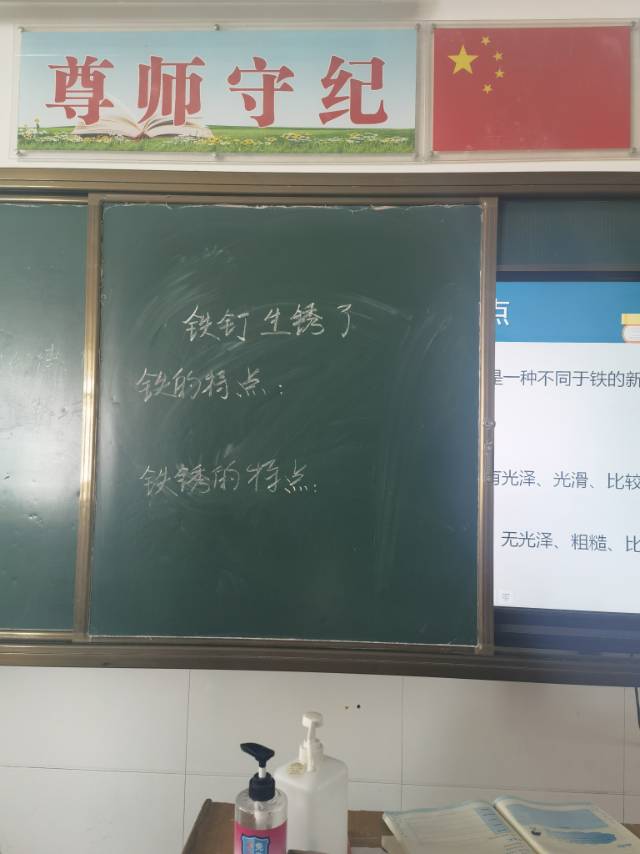 尊师守纪
铁钉生锈了
铁的特点：
铁锈的特点：
点
是一种不同于铁的新
有光泽、光滑、比较
无光泽、粗糙、比